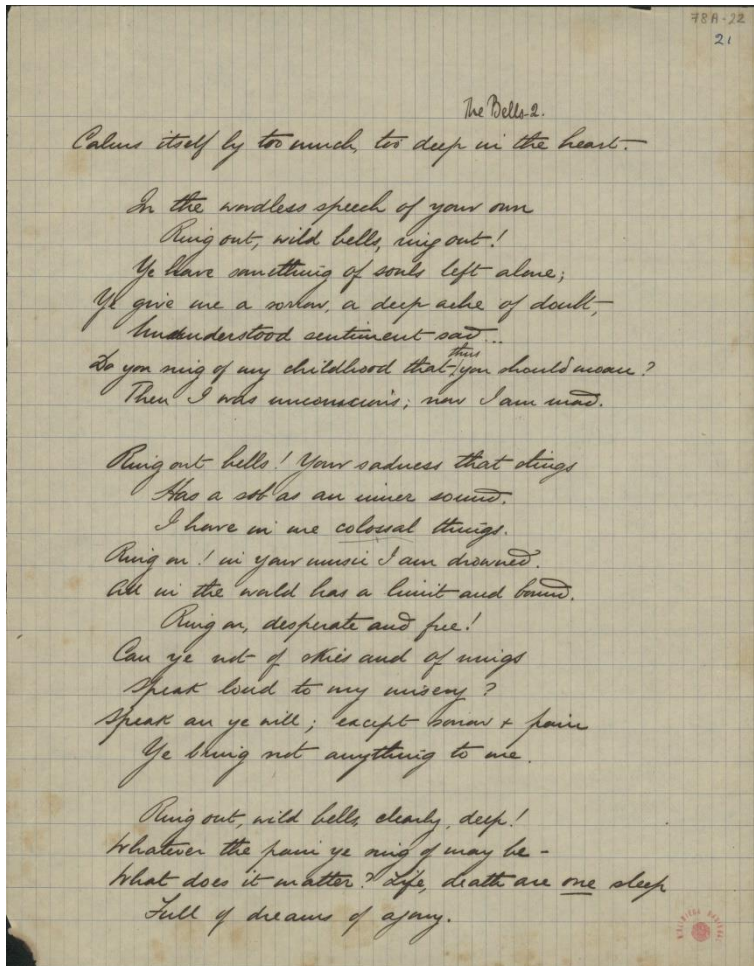 78A-22
21
The Bells-2.
Calms itself by too much, too deep in the heart.
In the wordless speech of your own
Ring out, wild bells, ring out!
Ye have something of souls left alone;
Ye give me a sorrow, a deep ache of doubt,
Ununderstood sentiment sad...
Do you ring of my childhood that thus you should moan?
Then I was unconscious; now I am mad.
Ring out bells! Your sadness that clings
Has a sob as an inner sound.
I have in me colossal things.
Ring on! in your music I am drowned.
All in the world has a limit and bound.
Ring on, desperate and free!
Can ye not of skies and of wings
Speak loud to my misery?
Speak an ye will; except sorrow + pain
Ye bring not anything to me.
Ring out, wild bells, clearly, deep!
Whatever the pain ye ring of may be -
What does it matter? Life, death are one sleep
Full of dreams of agony.